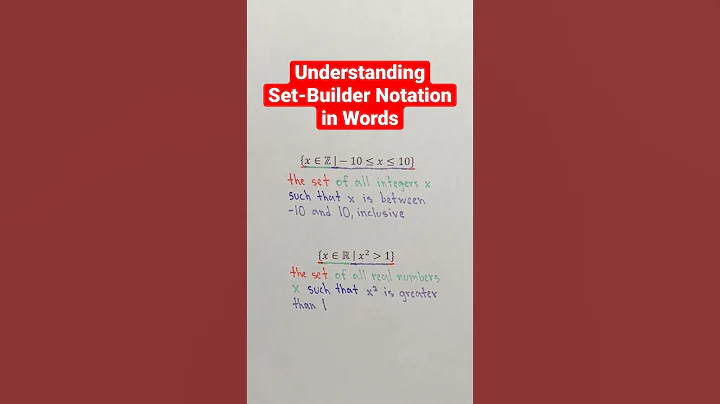 Understanding
Set-Builder Notation
in Words
{x ∈ ℤ | − 10 ≤ x ≤ 10}
the set of all integers x
such that x is between
-10 and 10, inclusive
{x ∈ ℝ | x² > 1}
the set of all real numbers
x such that x² is greater
than 1